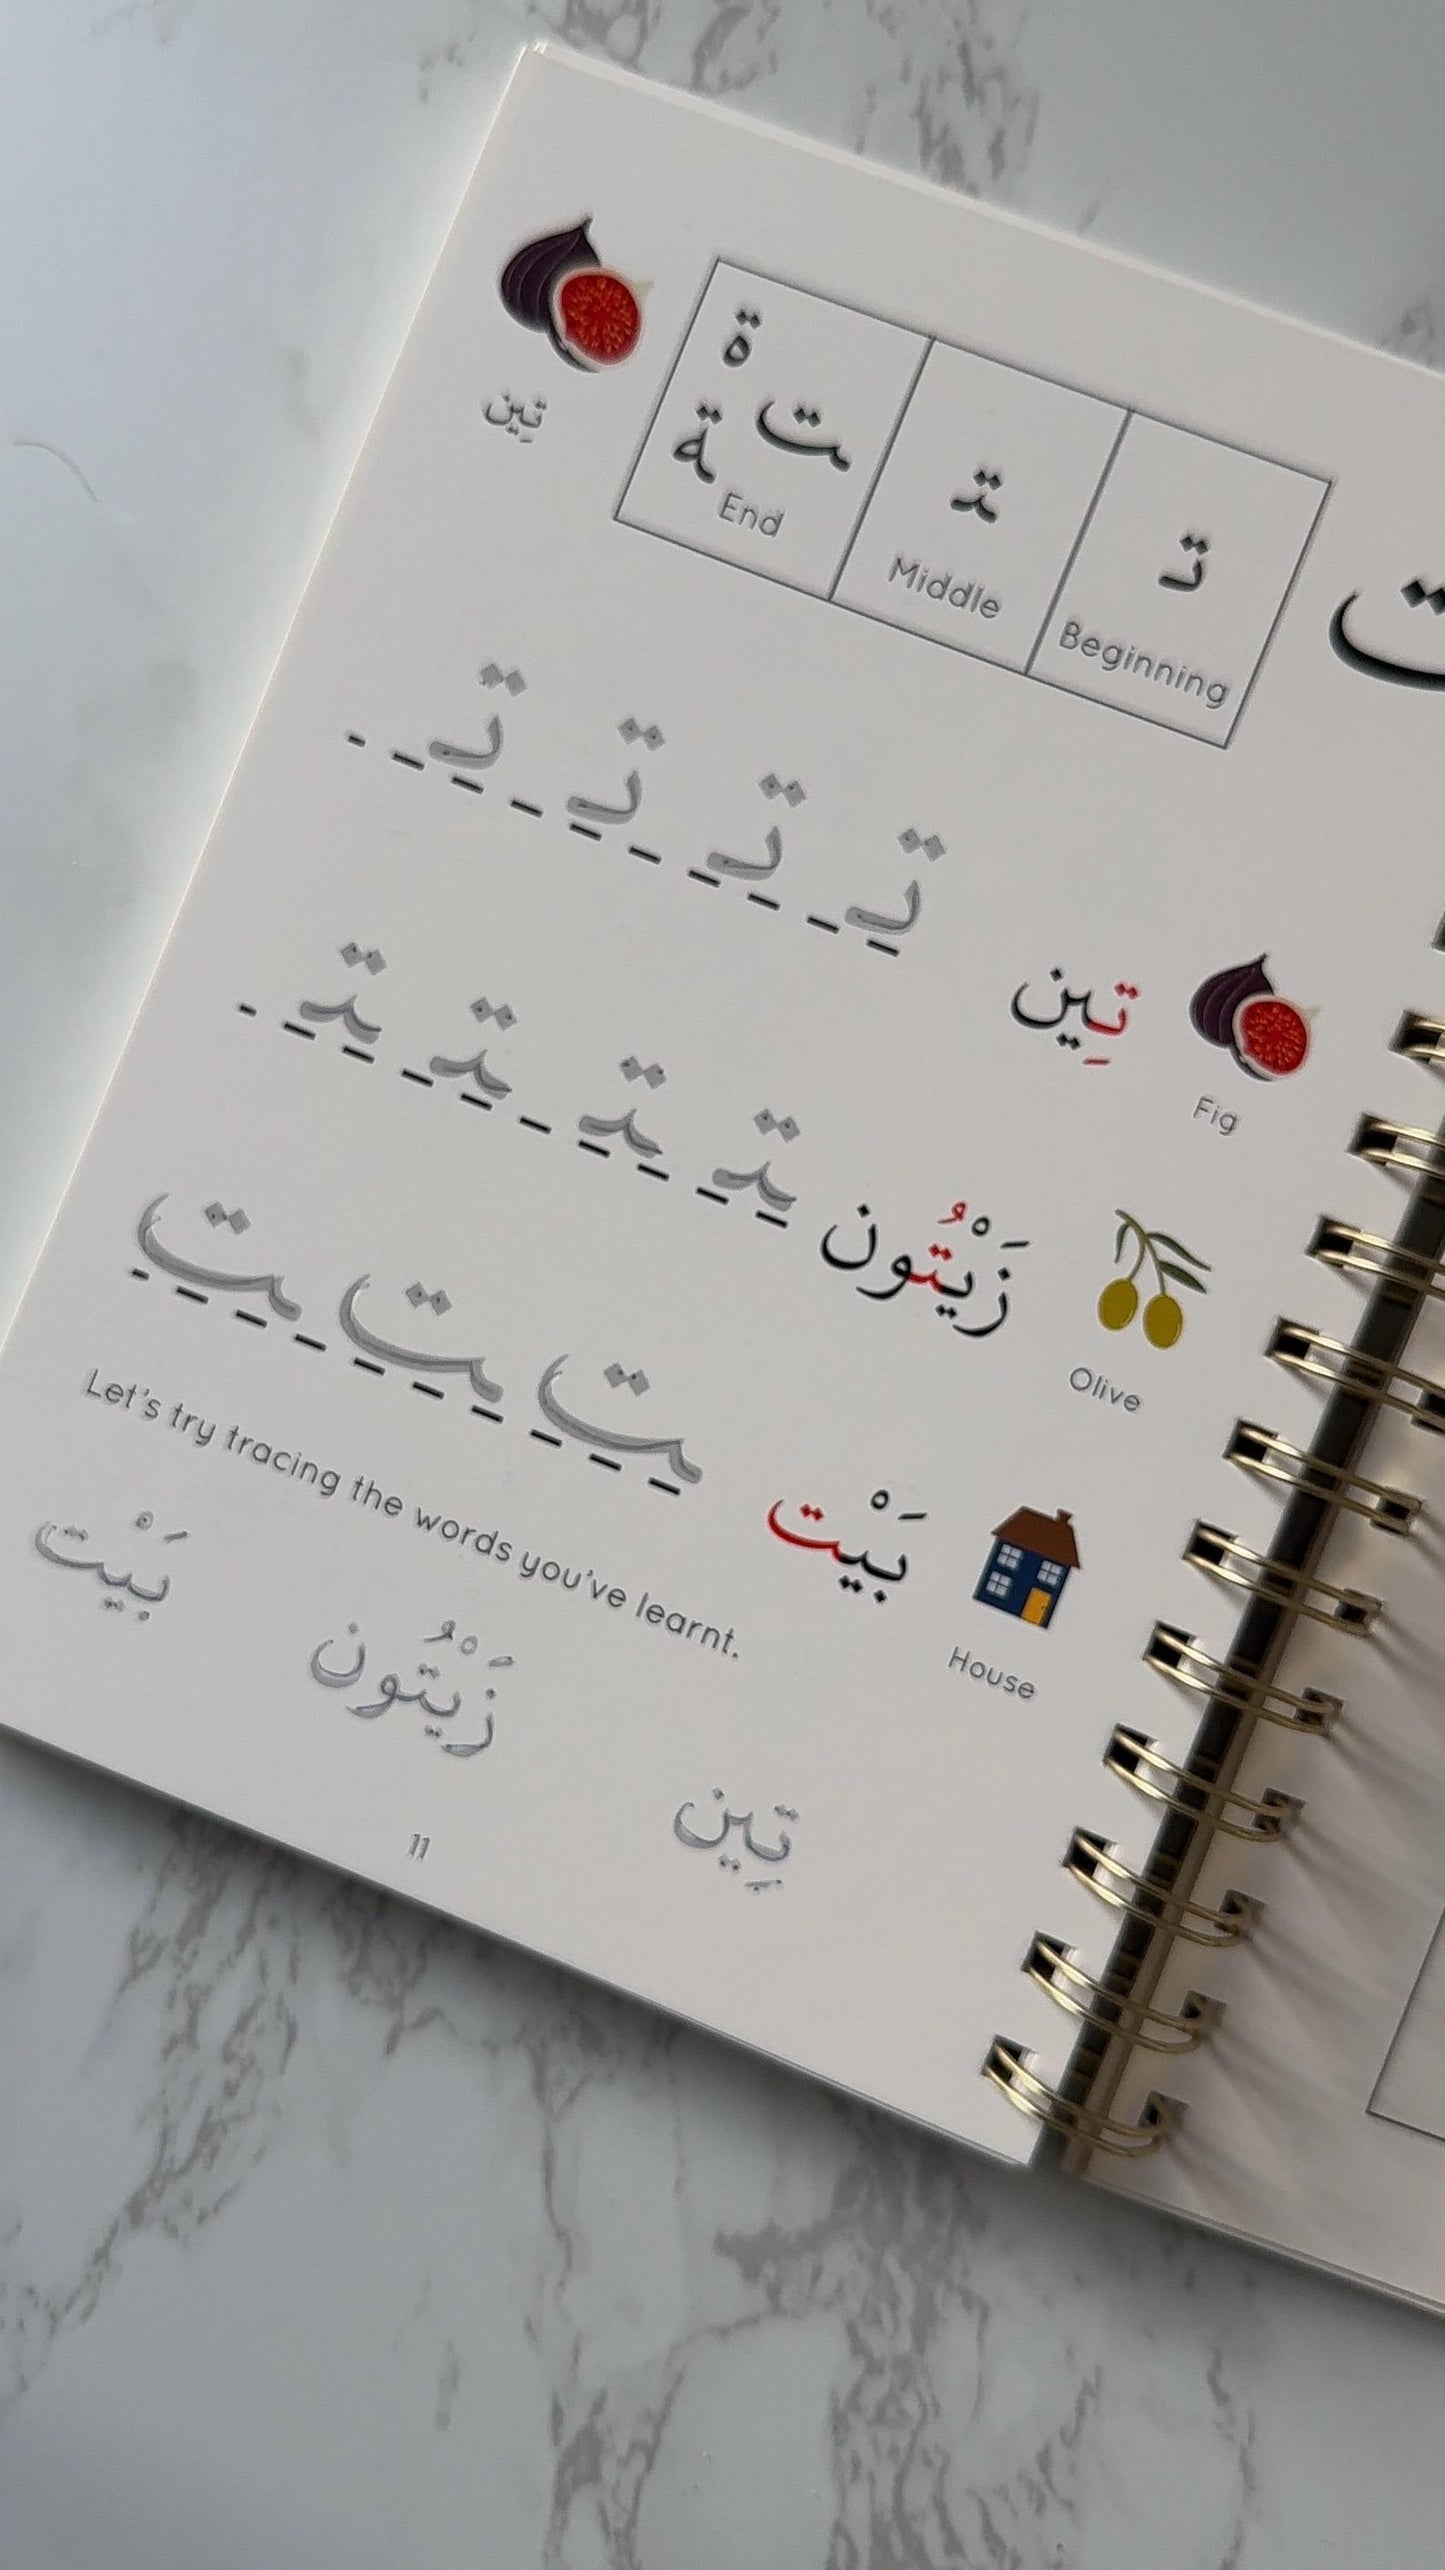 ت
ة ـت ـة
ـتـ
تـ
End
Middle
Beginning
تِين
تـ تـ تـ تـ
تِين
Fig
ـتـ ـتـ ـتـ ـتـ
زَيْتُون
Olive
ـت ـت ـت
بَيْت
House
Let's try tracing the words you've learnt.
تِين زَيْتُون بَيْت
11